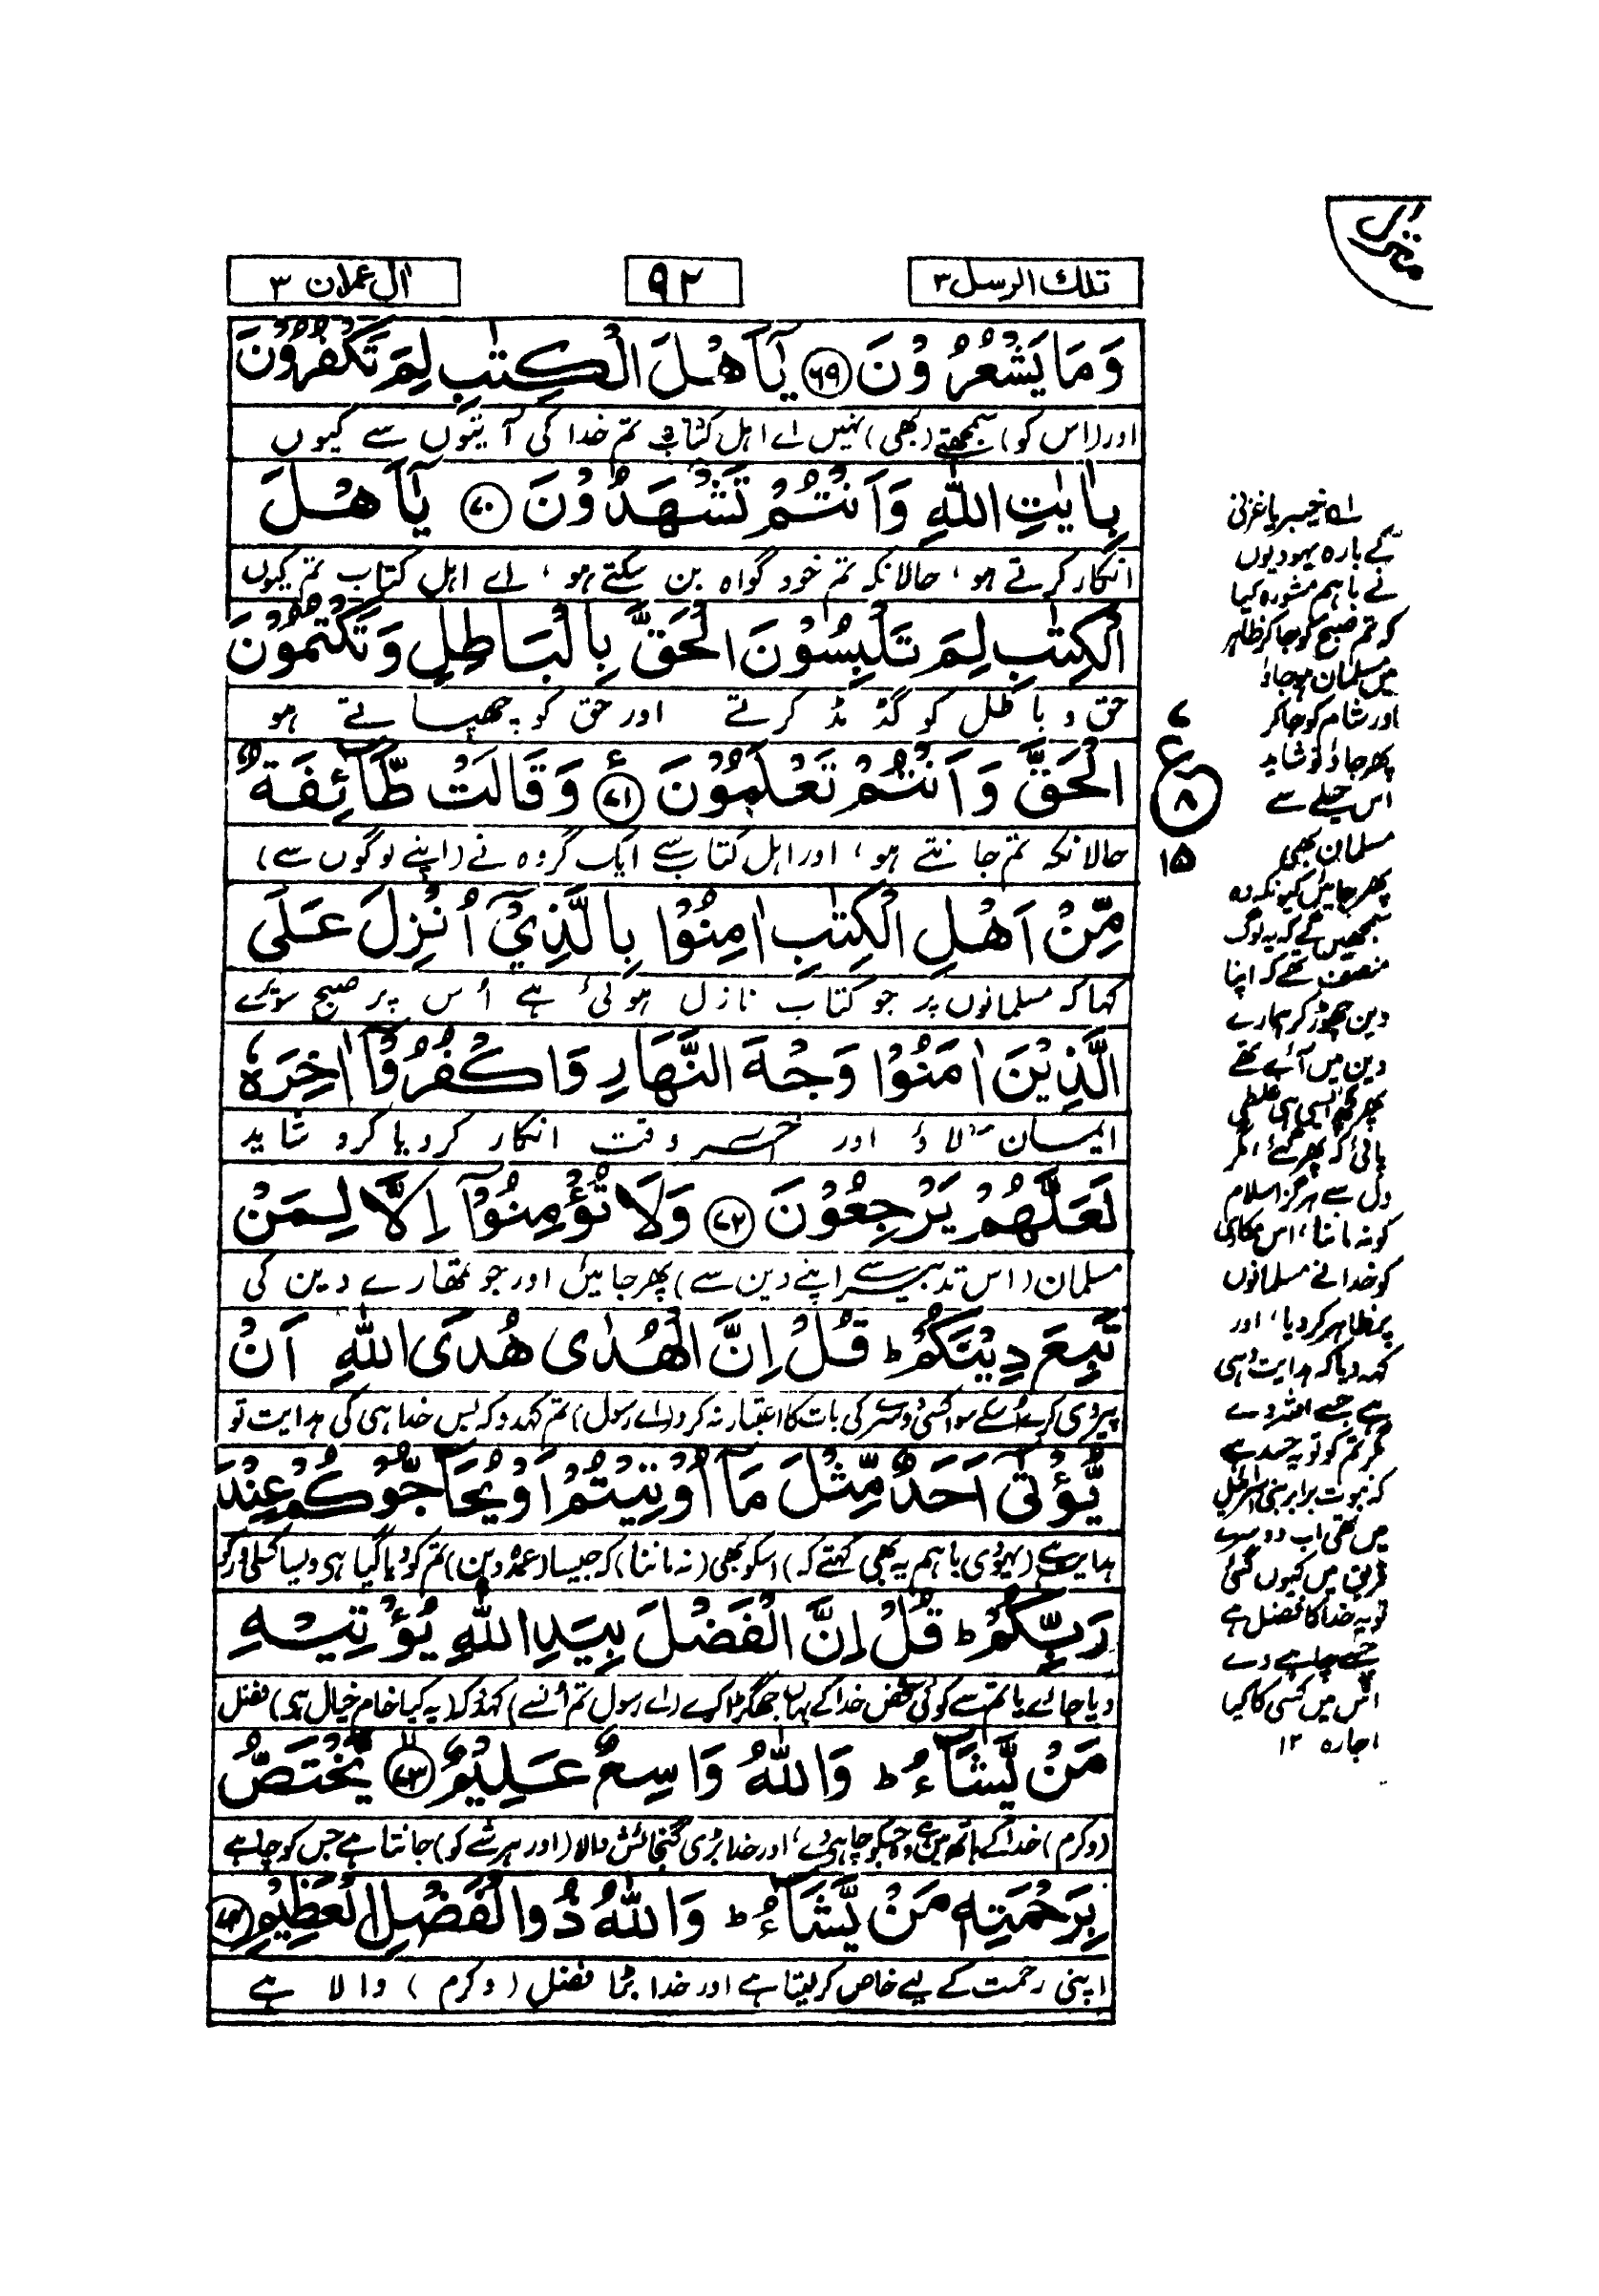 منزل
تلك الرسل ۳
۹۲
اٰل عمران ۳
وَمَا يَشْعُرُوْنَ ۶۹ يٰٓاَهْلَ الْكِتٰبِ لِمَ تَكْفُرُوْنَ
اور (اس کو) سمجھتے (بھی) نہیں اے اہل کتاب تم خدا کی آیتوں سے کیوں
بِاٰيٰتِ اللّٰهِ وَاَنْتُمْ تَشْهَدُوْنَ ۷۰ يٰٓاَهْلَ
انکار کرتے ہو، حالانکہ تم خود گواہ بن سکتے ہو، اے اہل کتاب تم کیوں
الْكِتٰبِ لِمَ تَلْبِسُوْنَ الْحَقَّ بِالْبَاطِلِ وَتَكْتُمُوْنَ
حق و باطل کو گڈ مڈ کرتے اور حق کو چھپاتے ہو
الْحَقَّ وَاَنْتُمْ تَعْلَمُوْنَ ۷۱ وَقَالَتْ طَّآئِفَةٌ
حالانکہ تم جانتے ہو، اور اہل کتاب سے ایک گروہ نے (اپنے لوگوں سے)
مِّنْ اَهْلِ الْكِتٰبِ اٰمِنُوْا بِالَّذِيْٓ اُنْزِلَ عَلَى
کہا کہ مسلمانوں پر جو کتاب نازل ہوئی ہے اُس پر صبح سویرے
الَّذِيْنَ اٰمَنُوْا وَجْهَ النَّهَارِ وَاكْفُرُوْٓا اٰخِرَهٗ
ایمان لاؤ اور آخر وقت انکار کر دیا کرو شاید
لَعَلَّهُمْ يَرْجِعُوْنَ ۷۲ وَلَا تُؤْمِنُوْٓا اِلَّا لِمَنْ
مسلمان (اس تدبیر سے اپنے دین سے) پھر جائیں اور جو تمھارے دین کی
تَبِعَ دِيْنَكُمْ ط قُلْ اِنَّ الْهُدٰى هُدَى اللّٰهِ اَنْ
پیروی کرے اُسکے سوا کسی دوسرے کی بات کا اعتبار نہ کرو (اے رسول) تم کہدو کہ بس خدا ہی کی ہدایت تو
يُّؤْتٰٓى اَحَدٌ مِّثْلَ مَآ اُوْتِيْتُمْ اَوْ يُحَآجُّوْكُمْ عِنْدَ
ہدایت ہے (یہودی باہم یہ بھی کہتے کہ) اسکو بھی (نہ ماننا) کہ جیسا (عمدہ دین) تم کو دیا گیا ہی ویسا کسی اور کو
رَبِّكُمْ ط قُلْ اِنَّ الْفَضْلَ بِيَدِ اللّٰهِ يُؤْتِيْهِ
دیا جائے یا تم سے کوئی شخص خدا کے یہاں جھگڑا کرے (اے رسول تم اُنسے) کہدو کہ (یہ کیا خام خیال ہی) فضل
مَنْ يَّشَآءُ ط وَاللّٰهُ وَاسِعٌ عَلِيْمٌ ۷۳ يَّخْتَصُّ
(و کرم) خدا کے ہاتھ میں ہے وہ جسکو چاہے دے، اور خدا بڑی گنجائش والا (اور ہر شے کو) جانتا ہے جس کو چاہے
بِرَحْمَتِهٖ مَنْ يَّشَآءُ ط وَاللّٰهُ ذُو الْفَضْلِ الْعَظِيْمِ ۷۴
اپنی رحمت کے لیے خاص کر لیتا ہے اور خدا بڑا فضل (و کرم) والا ہے
ع
۸
۱۵
خیبر یا عرنی
کے بارہ یہودیوں
نے باہم مشورہ کیا
کہ تم صبح کو جاکر ظاہر
میں مسلمان ہو جاؤ
اور شام کو جا کر
پھر جاؤ تو شاید
اس حیلے سے
مسلمان بھی
پھر جائیں کیونکہ وہ
سمجھیں گے کہ یہ لوگ
منصف تھے کہ اپنا
دین چھوڑ کر ہمارے
دین میں آئے تھے
پھر کچھ ایسی ہی غلطی
پائی کہ پھر گئے، مگر
دل سے ہرگز اسلام
کو نہ مانا، اس مکاری
کو خدا نے مسلمانوں
پر ظاہر کر دیا، اور
کہہ دیا کہ ہدایت وہی
ہے جسے اللہ دے
مگر تم کو تو یہ حسد ہے
کہ نبوت برابر بنی اسرائیل
میں تھی اب دوسرے
فریق میں کیوں گئی
تو یہ خدا کا فضل ہے
جسے چاہے دے
اس میں کسی کا کیا
اجارہ ۱۲